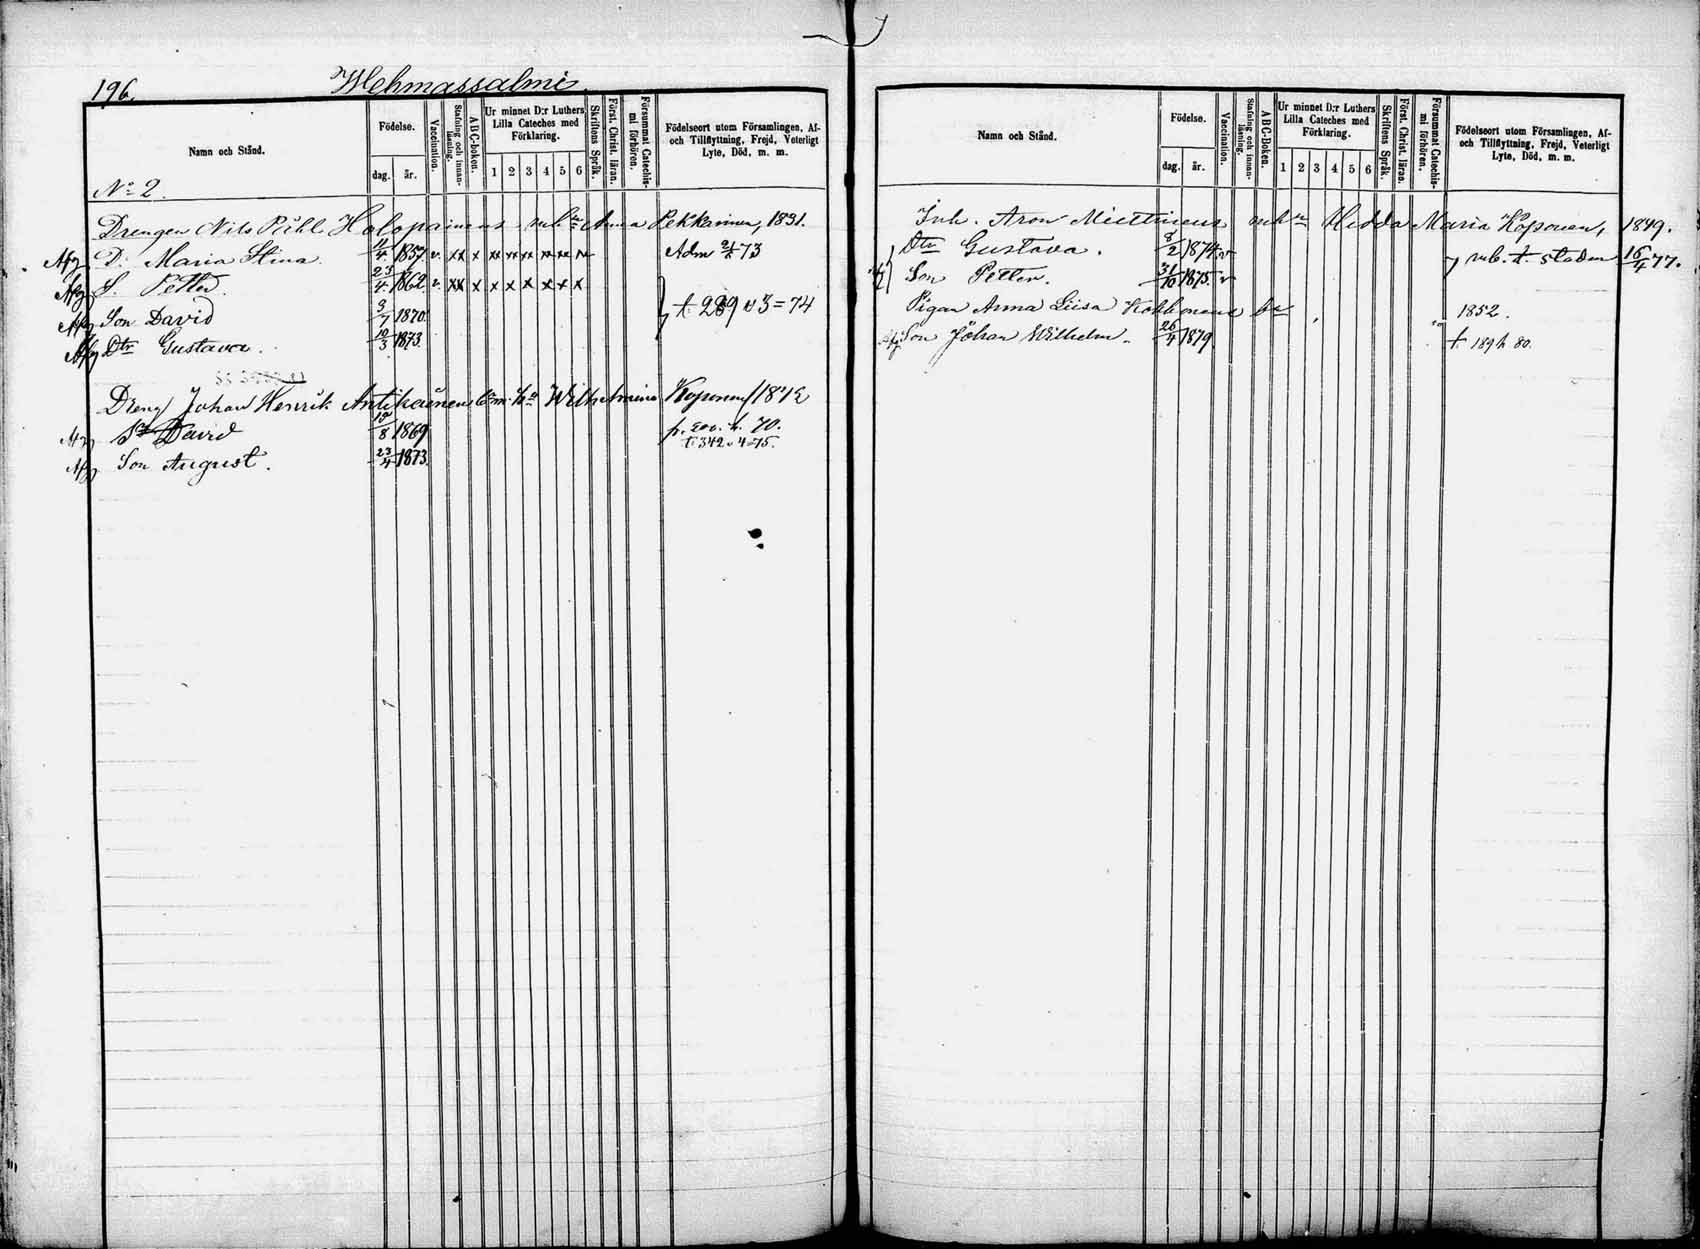 196.
Wehmassalmi.
Namn och Stånd.
Födelse.
dag. år.
Vaccination.
Stafning och innanläsning.
ABC-boken.
Ur minnet D:r Luthers Lilla Cateches med Förklaring.
1 2 3 4 5 6
Skriftens Språk.
Först. Christ. läran.
Försummat Catechismi förhören.
Födelseort utom Församlingen, Af- och Tillflyttning, Frejd, Veterligt Lyte, Död, m. m.
No 2.
Drengen Nils Holopainens Anna Pekkarinen, 1831.
Afg D. Maria Stina. 11/4 1857. v. xx x xx xx xx xx xx Adm 73
Afg S. Petter. 23/4 1862. v. xx x x x x x x x
Afg Son David 3/7 1870. † 289 v 3 = 74
Afg Dtr Gustava. 10/3 1873.
Dreng Johan Henrik Antikainen Wilhelmina Koponen 1842
Afg David /8 1869 70.
† 342 v 4 = 75.
Afg Son August. 23/4 1873.
Namn och Stånd.
Födelse.
dag. år.
Vaccination.
Stafning och innanläsning.
ABC-boken.
Ur minnet D:r Luthers Lilla Cateches med Förklaring.
1 2 3 4 5 6
Skriftens Språk.
Först. Christ. läran.
Försummat Catechismi förhören.
Födelseort utom Församlingen, Af- och Tillflyttning, Frejd, Veterligt Lyte, Död, m. m.
Inh. Aron Miettinens Hedda Maria Koponen, 1849.
Dtr Gustava. 8/2 1874. v
Son Petter. 31/10 1875. v t. staden 16/4 77.
Pigan Anna Liisa 1852.
Son Johan Wilhelm. 26/4 1879 † 189 80.